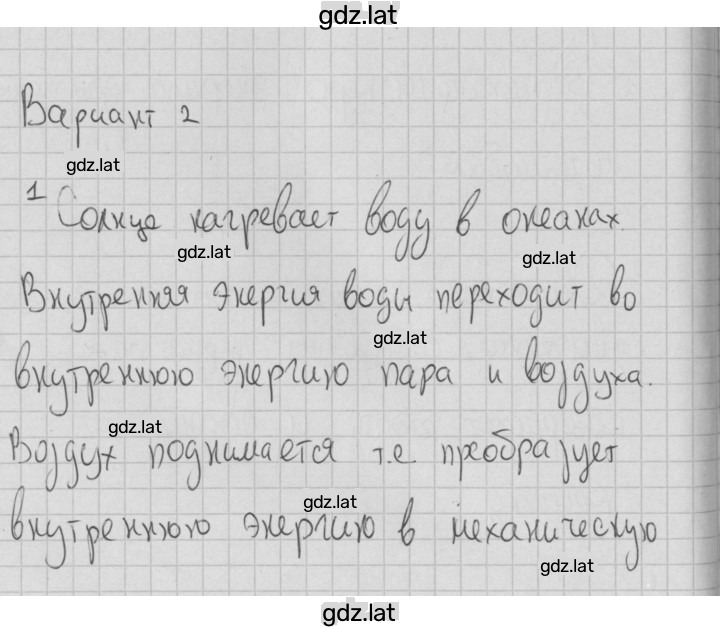 gdz.lat
Вариант 2
gdz.lat
1 Солнце нагревает воду в океанах.
gdz.lat
gdz.lat
Внутренняя энергия воды переходит во
gdz.lat
внутреннюю энергию пара и воздуха.
gdz.lat
Воздух поднимается т.е. преобразует
gdz.lat
внутреннюю энергию в механическую
gdz.lat
gdz.lat